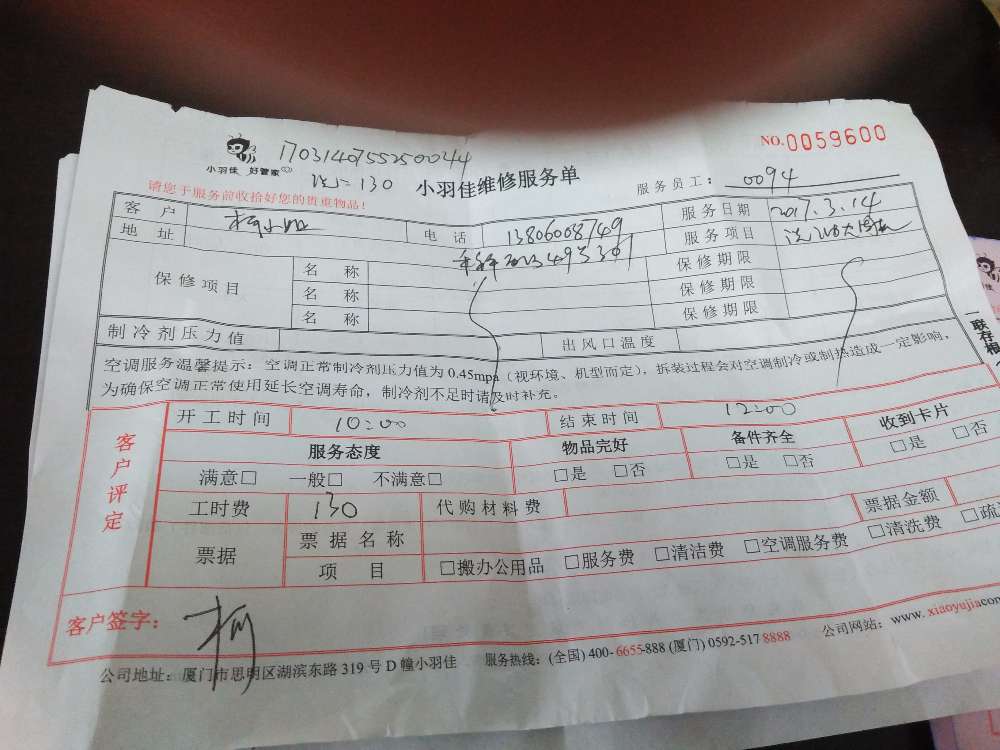 NO.0059600
小羽佳 好管家
1703140755250044
小羽佳维修服务单
130
服务员工: 0094
请您于服务前收拾好您的贵重物品!
客户 电话 13806008749 服务日期 2017.3.14
地址 服务项目
保修项目 名称 保修期限
名称 保修期限
名称 保修期限
制冷剂压力值 出风口温度
空调服务温馨提示: 空调正常制冷剂压力值为0.45mpa (视环境、机型而定), 拆装过程会对空调制冷或制热造成一定影响,
为确保空调正常使用延长空调寿命, 制冷剂不足时请及时补充。
一联存根
客户评定
开工时间 10:00 结束时间 12:00
服务态度 物品完好 备件齐全 收到卡片
满意□ 一般□ 不满意□ □是 □否 □是 □否 □是 □否
工时费 130 代购材料费 票据金额
票据 票据名称
项目 □搬办公用品 □服务费 □清洁费 □空调服务费 □清洗费 □疏
客户签字:
公司地址: 厦门市思明区湖滨东路319号D幢小羽佳 服务热线: (全国) 400-6655-888 (厦门) 0592-517 8888 公司网站: www.xiaoyujiacom